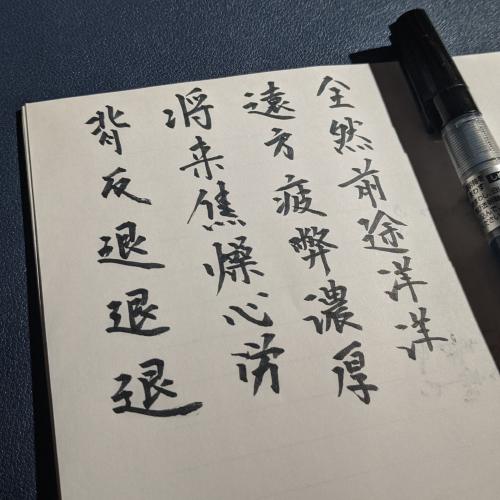 全然前途洋洋
遠方疲弊濃厚
将来焦燥心労
背反退退退